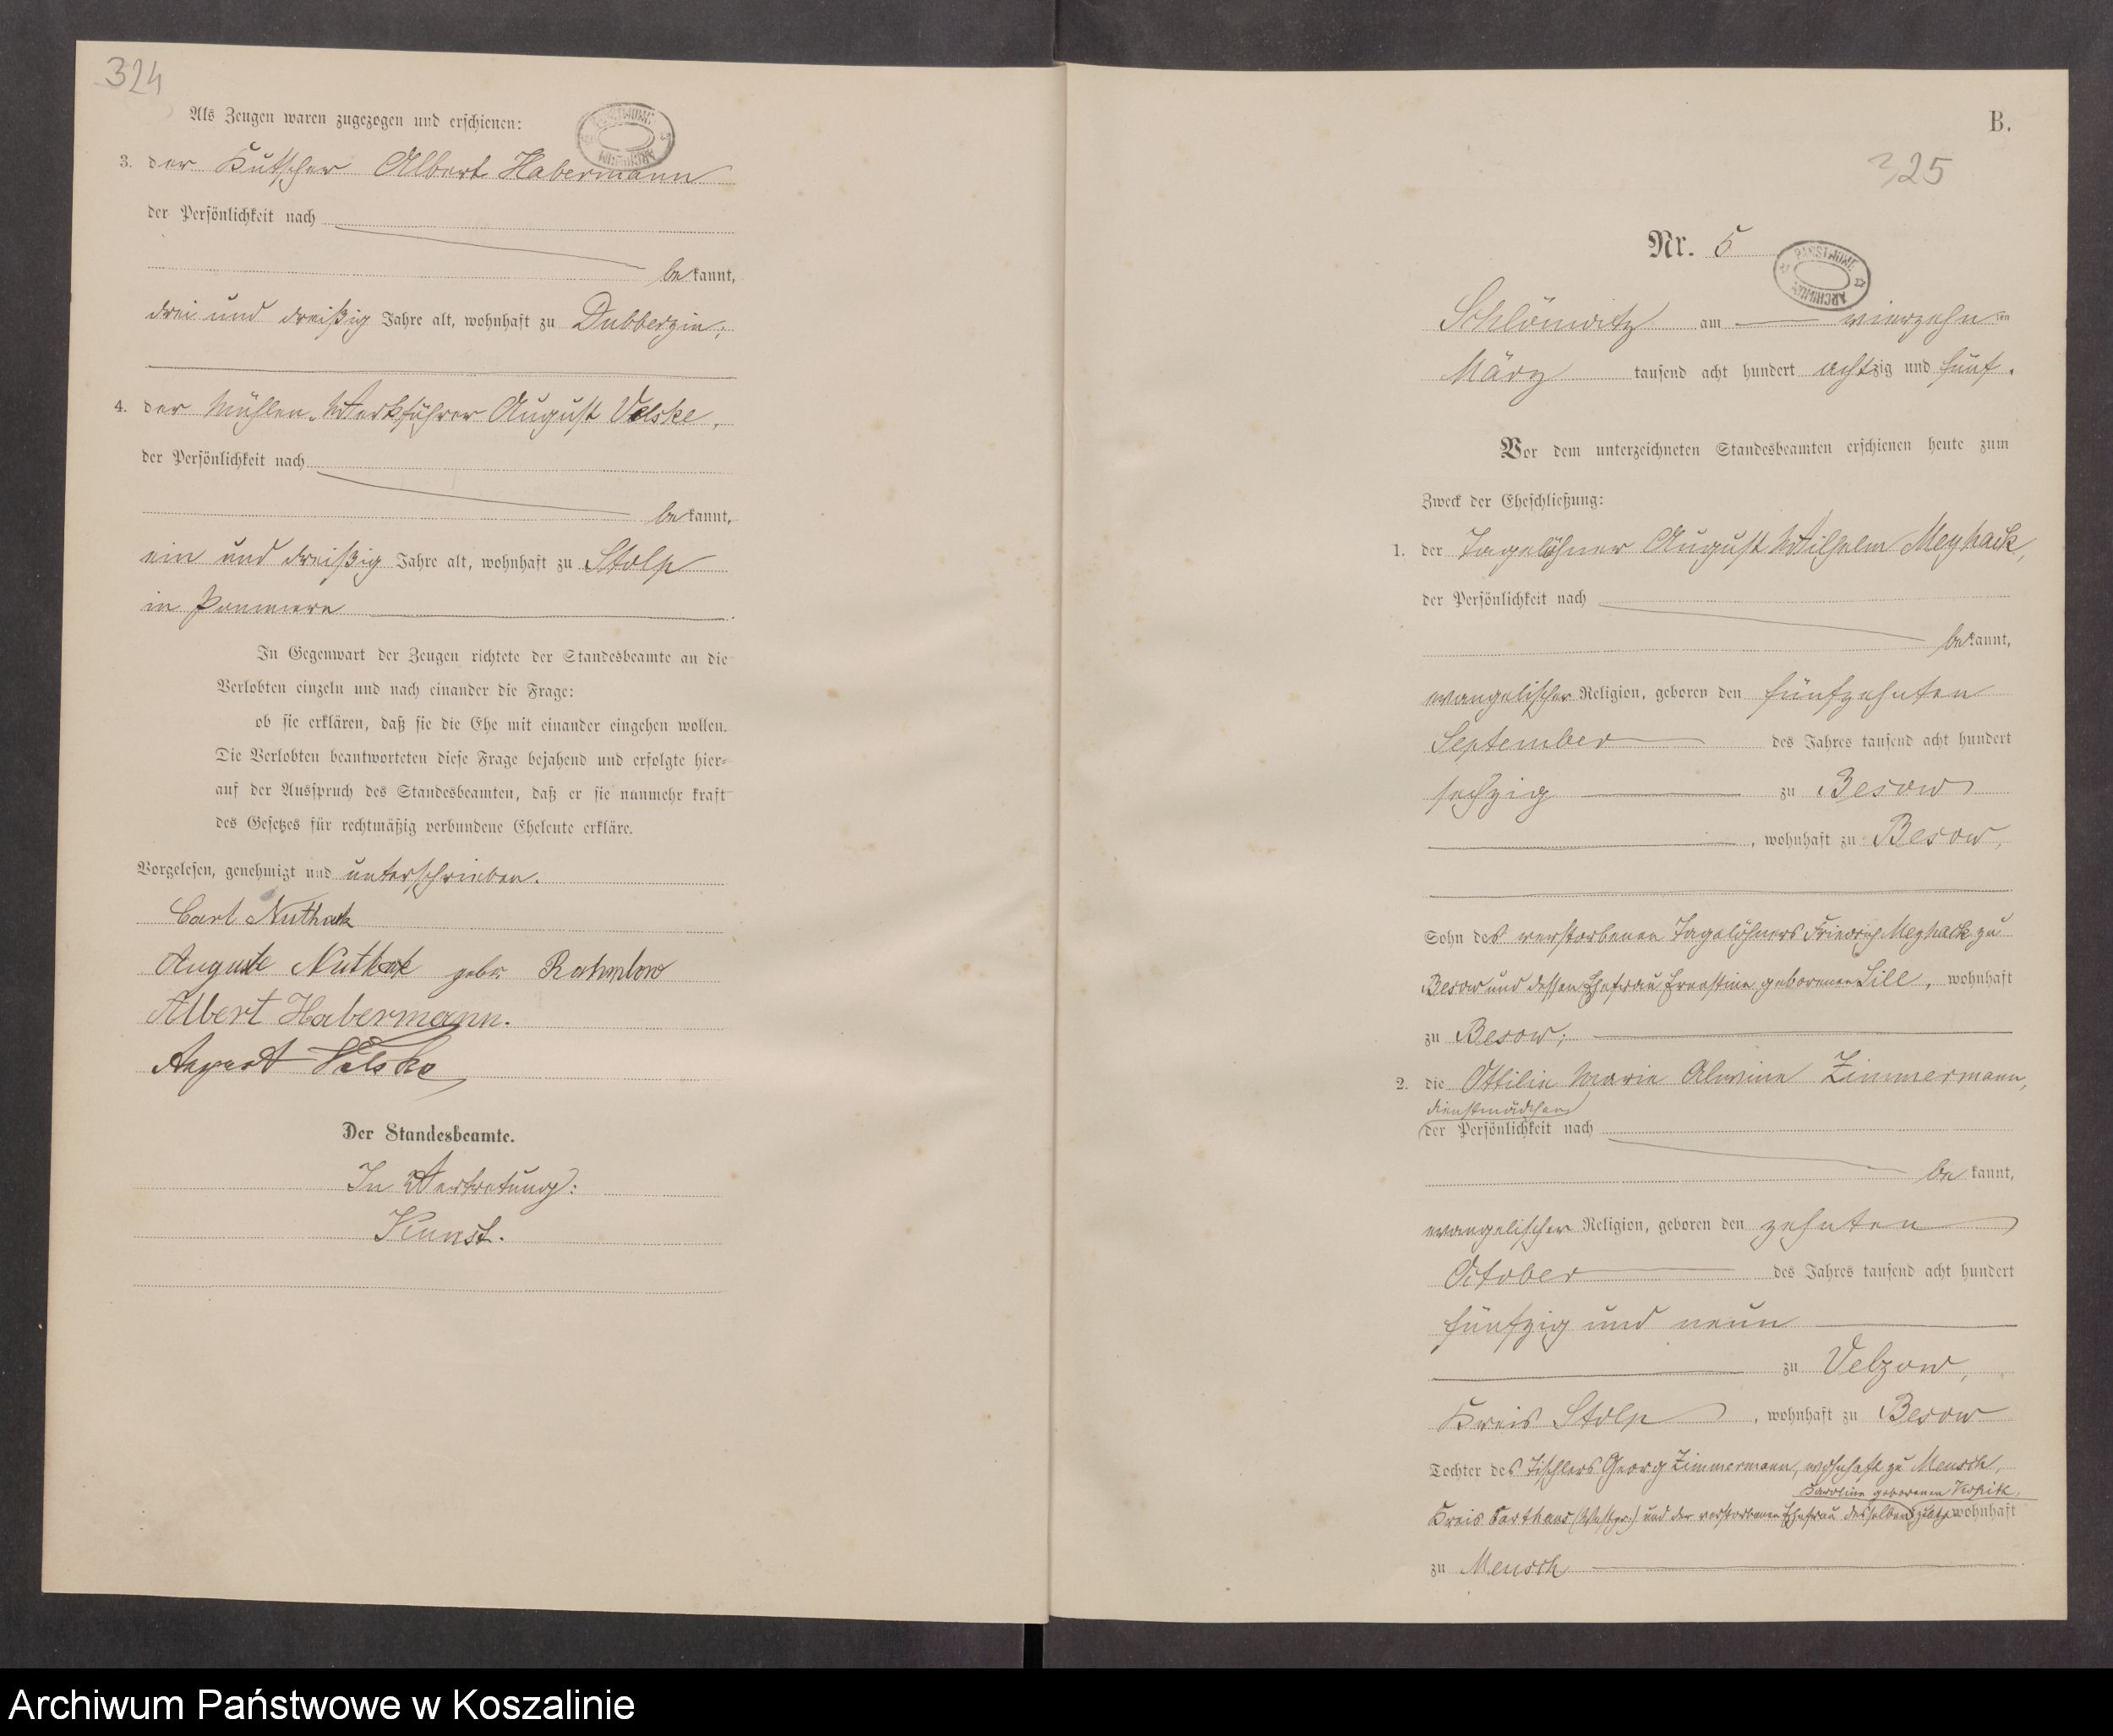 324
Als Zeugen waren zugezogen und erschienen:
PAŃSTWOWE ARCHIWUM
3. der Kutscher Albert Habermann
der Persönlichkeit nach
bekannt,
drei und dreißig Jahre alt, wohnhaft zu Dubberzin;
4. der Mühlen-Werkführer August Velske,
der Persönlichkeit nach
bekannt,
ein und dreißig Jahre alt, wohnhaft zu Stolp
in Pommern
In Gegenwart der Zeugen richtete der Standesbeamte an die
Verlobten einzeln und nach einander die Frage:
ob sie erklären, daß sie die Ehe mit einander eingehen wollen.
Die Verlobten beantworteten diese Frage bejahend und erfolgte hier-
auf der Ausspruch des Standesbeamten, daß er sie nunmehr kraft
des Gesetzes für rechtmäßig verbundene Eheleute erkläre.
Vorgelesen, genehmigt und unterschrieben.
Carl Nuthack
Auguste Nuthack gebr. Rahmlow
Albert Habermann.
August Velske
Der Standesbeamte.
In Vertretung:
Kunst.
B.
325
Nr. 5
PAŃSTWOWE ARCHIWUM
Schlönwitz am vierzehnten
März tausend acht hundert achtzig und fünf.
Vor dem unterzeichneten Standesbeamten erschienen heute zum
Zweck der Eheschließung:
1. der Tagelöhner August Wilhelm Meyhack,
der Persönlichkeit nach
bekannt,
evangelischer Religion, geboren den fünfzehnten
September des Jahres tausend acht hundert
sechzig zu Besow
, wohnhaft zu Besow,
Sohn des verstorbenen Tagelöhners Friedrich Meyhack zu
Besow und dessen Ehefrau Ernestine geborenen Sill, wohnhaft
zu Besow;
2. die Ottilie Marie Alwine Zimmermann,
Dienstmädchen
der Persönlichkeit nach
bekannt,
evangelischer Religion, geboren den zehnten
October des Jahres tausend acht hundert
fünfzig und neun
zu Velzow,
Kreis Stolp, wohnhaft zu Besow
Tochter des Tischlers Georg Zimmermann, wohnhaft zu Meusch,
Karoline geborenen
Kreis Carthaus (Westpr.) und der verstorbenen Ehefrau desselben zuletzt wohnhaft
zu Meusch
Archiwum Państwowe w Koszalinie